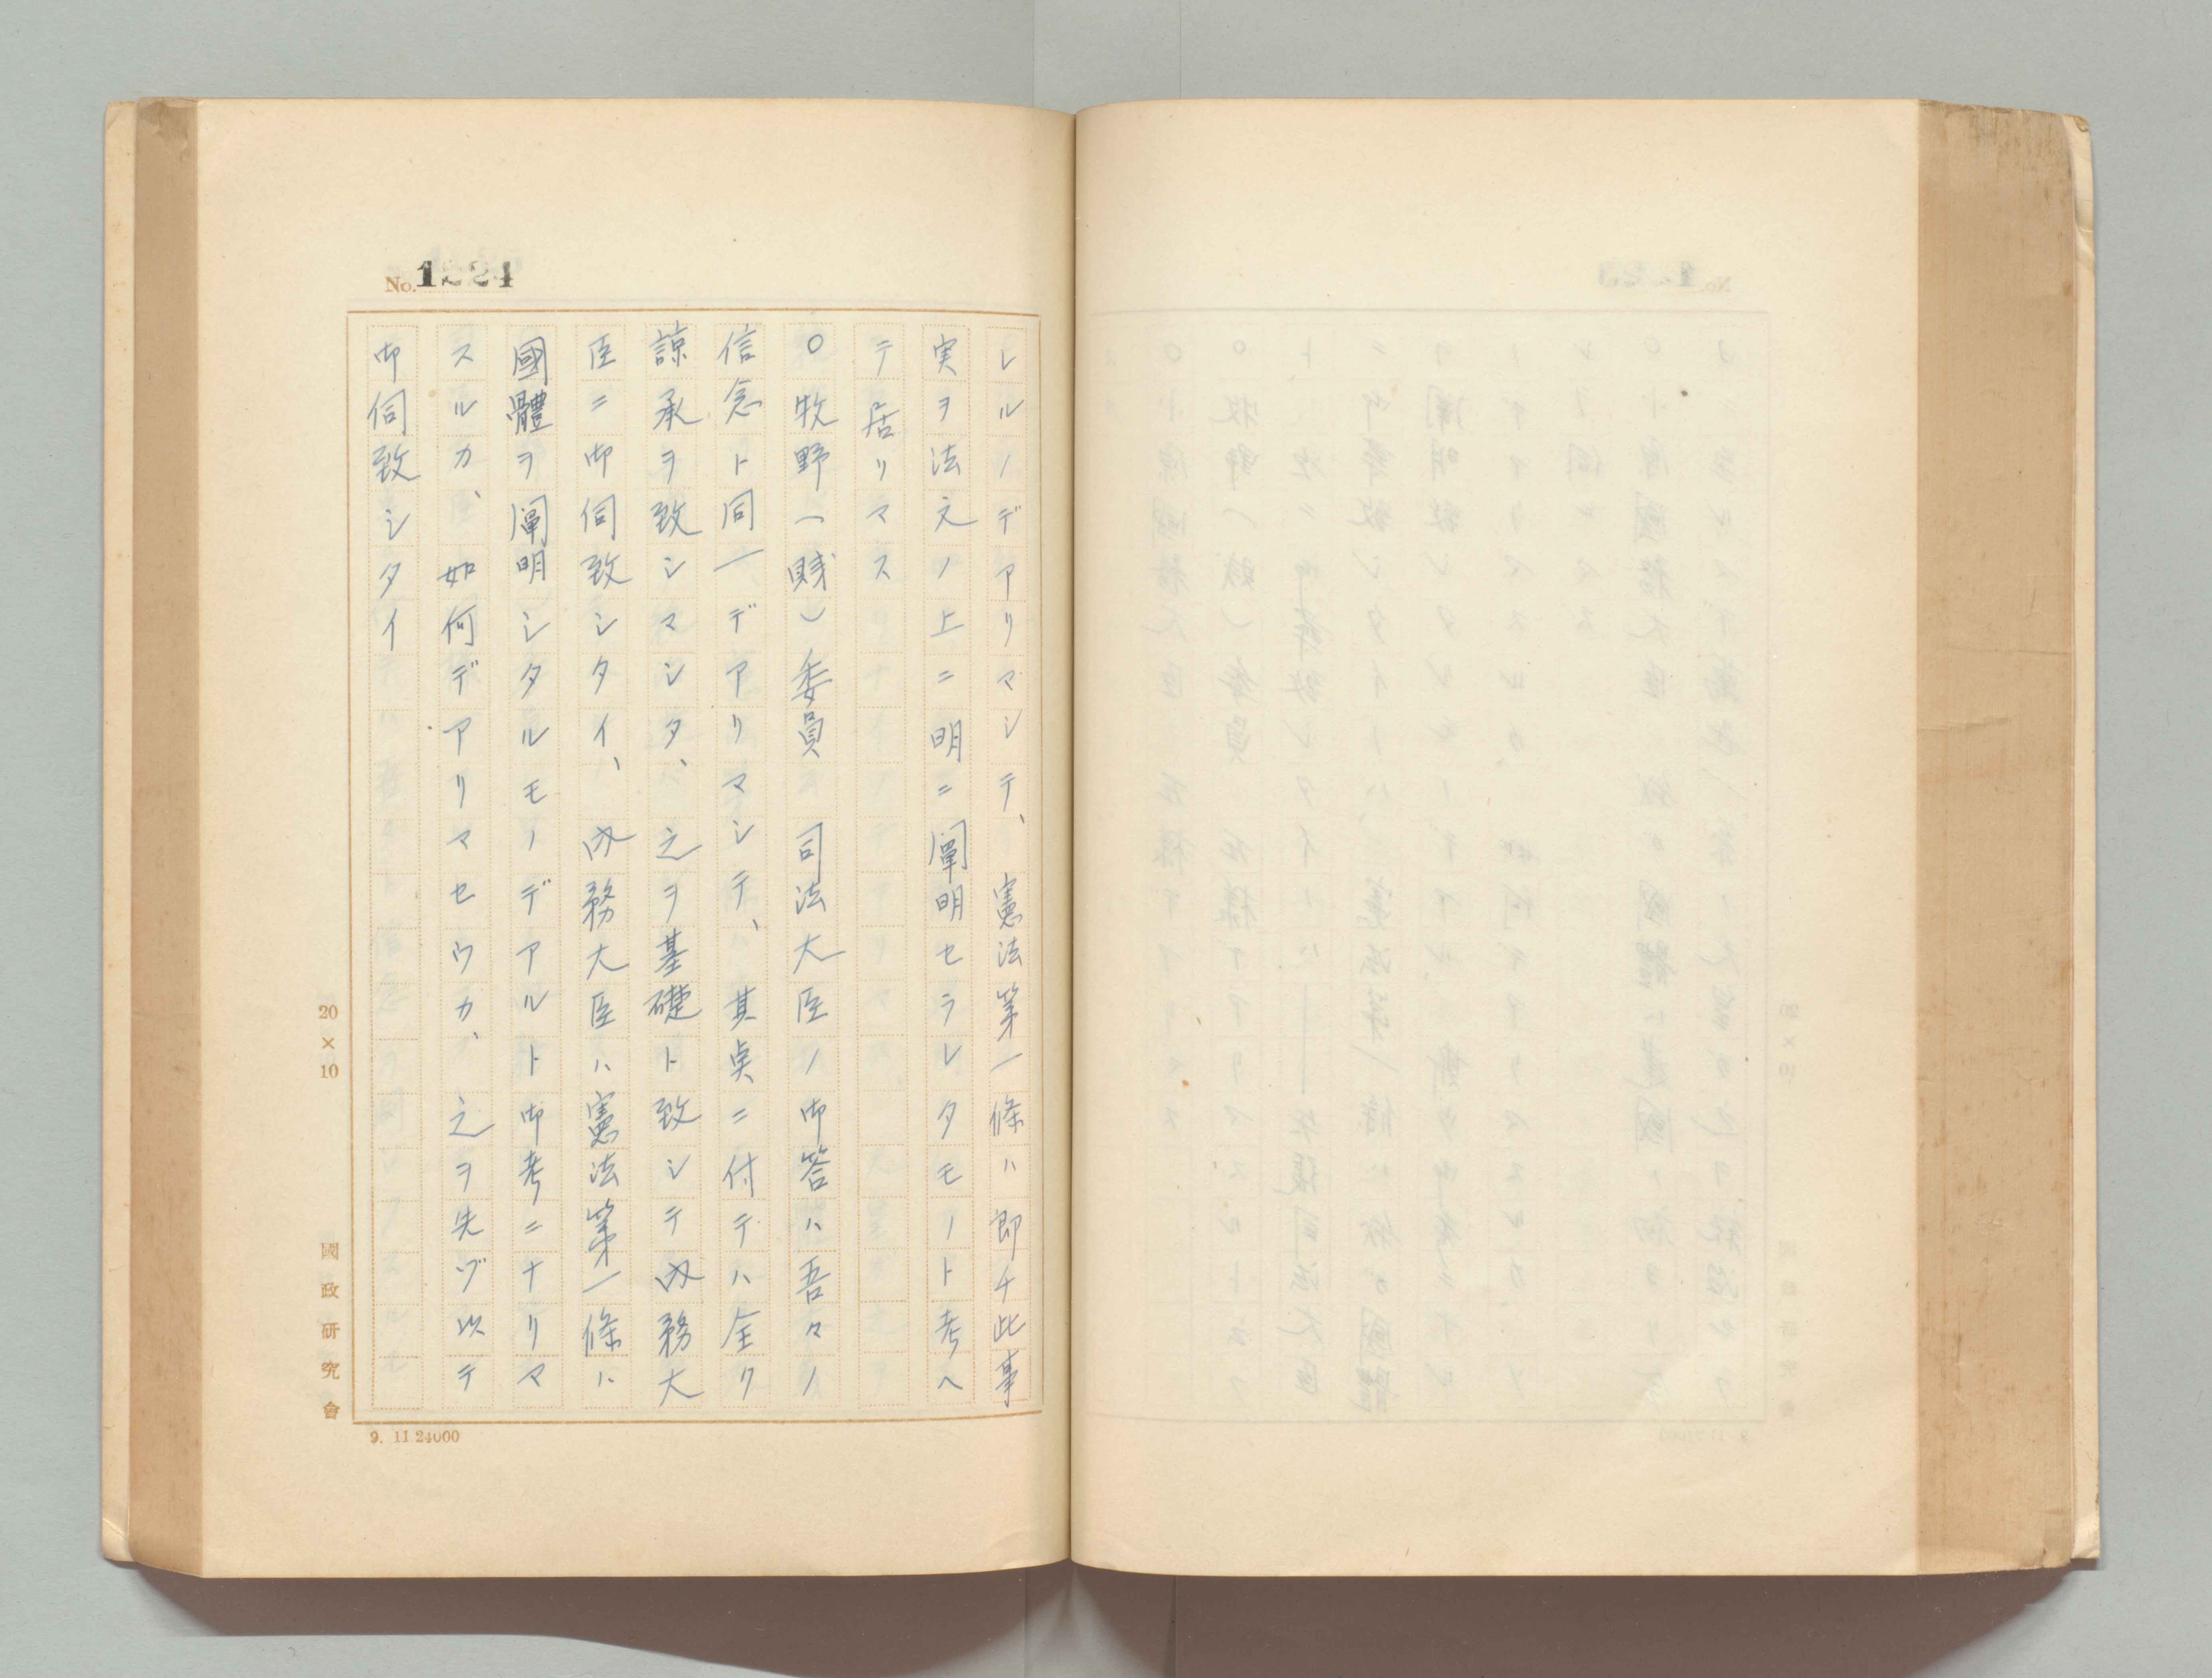 No.1224
レルノデアリマシテ、憲法第一條ハ即チ此事
実ヲ法文ノ上ニ明ニ闡明セラレタモノト考ヘ
テ居リマス
○牧野(賤)委員 司法大臣ノ御答ハ吾々ノ
信念ト同一デアリマシテ、其点ニ付テハ全ク
諒承ヲ致シマシタ、之ヲ基礎ト致シテ内務大
臣ニ御伺致シタイ、内務大臣ハ憲法第一條ハ
國體ヲ闡明シタルモノデアルト御考ニナリマ
スルカ、如何デアリマセウカ、之ヲ先ヅ以テ
御伺致シタイ
20×10
國政研究會
9. 11 24000